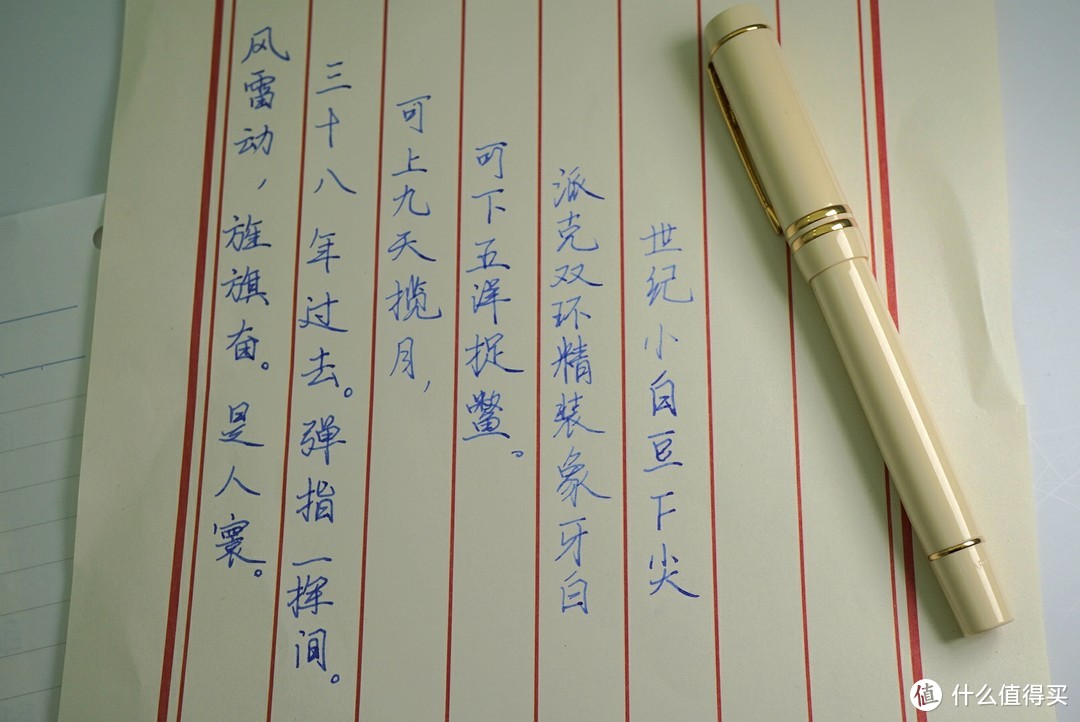 风雷动，旌旗奋。是人寰。
三十八年过去。弹指一挥间。
可上九天揽月，
可下五洋捉鳖。
派克双环精装象牙白
世纪小白豆F尖
值 什么值得买